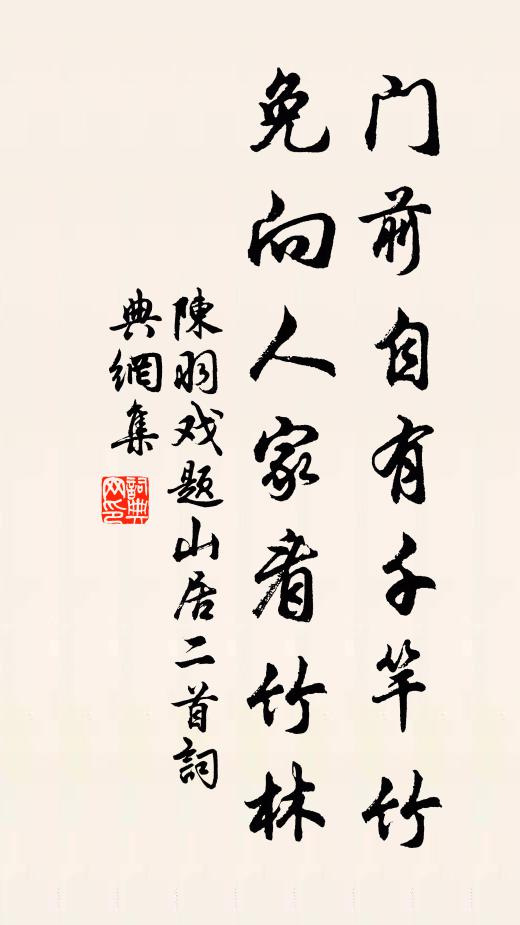 门前自有千竿竹
免向人家看竹林
陳羽戏题山居二首詞
典網集
詞典网印